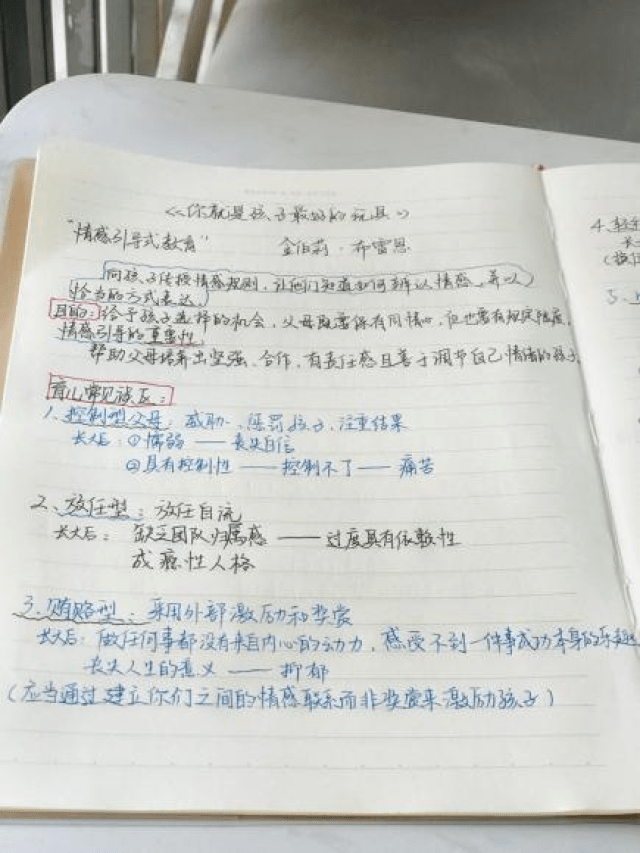 《你就是孩子最好的玩具》
"情感引导式教育" 金伯莉·布雷恩
向孩子传授情感规则,让他们知道如何辨认情感,并以
恰当的方式表达。
目的:给予孩子选择的机会,父母既要保有同情心,但也要有规定限度。
情感引导的重要性
帮助父母培养出坚强、合作、有责任感且善于调节自己情绪的孩子。
育儿常见误区:
1、控制型父母:威胁、惩罚孩子,注重结果
长大后:①懦弱——丧失自信
②具有控制性——控制不了——痛苦
2、放任型:放任自流
长大后:缺乏团队归属感——过度具有依赖性
成瘾性人格
3、贿赂型:采用外部激励和奖赏
长大后:做任何事都没有来自内心的动力,感受不到一件事成功本身的乐趣
丧失人生的意义——抑郁
(应当通过建立你们之间的情感联系而非奖赏来激励孩子)
4、
长
(放任
5、